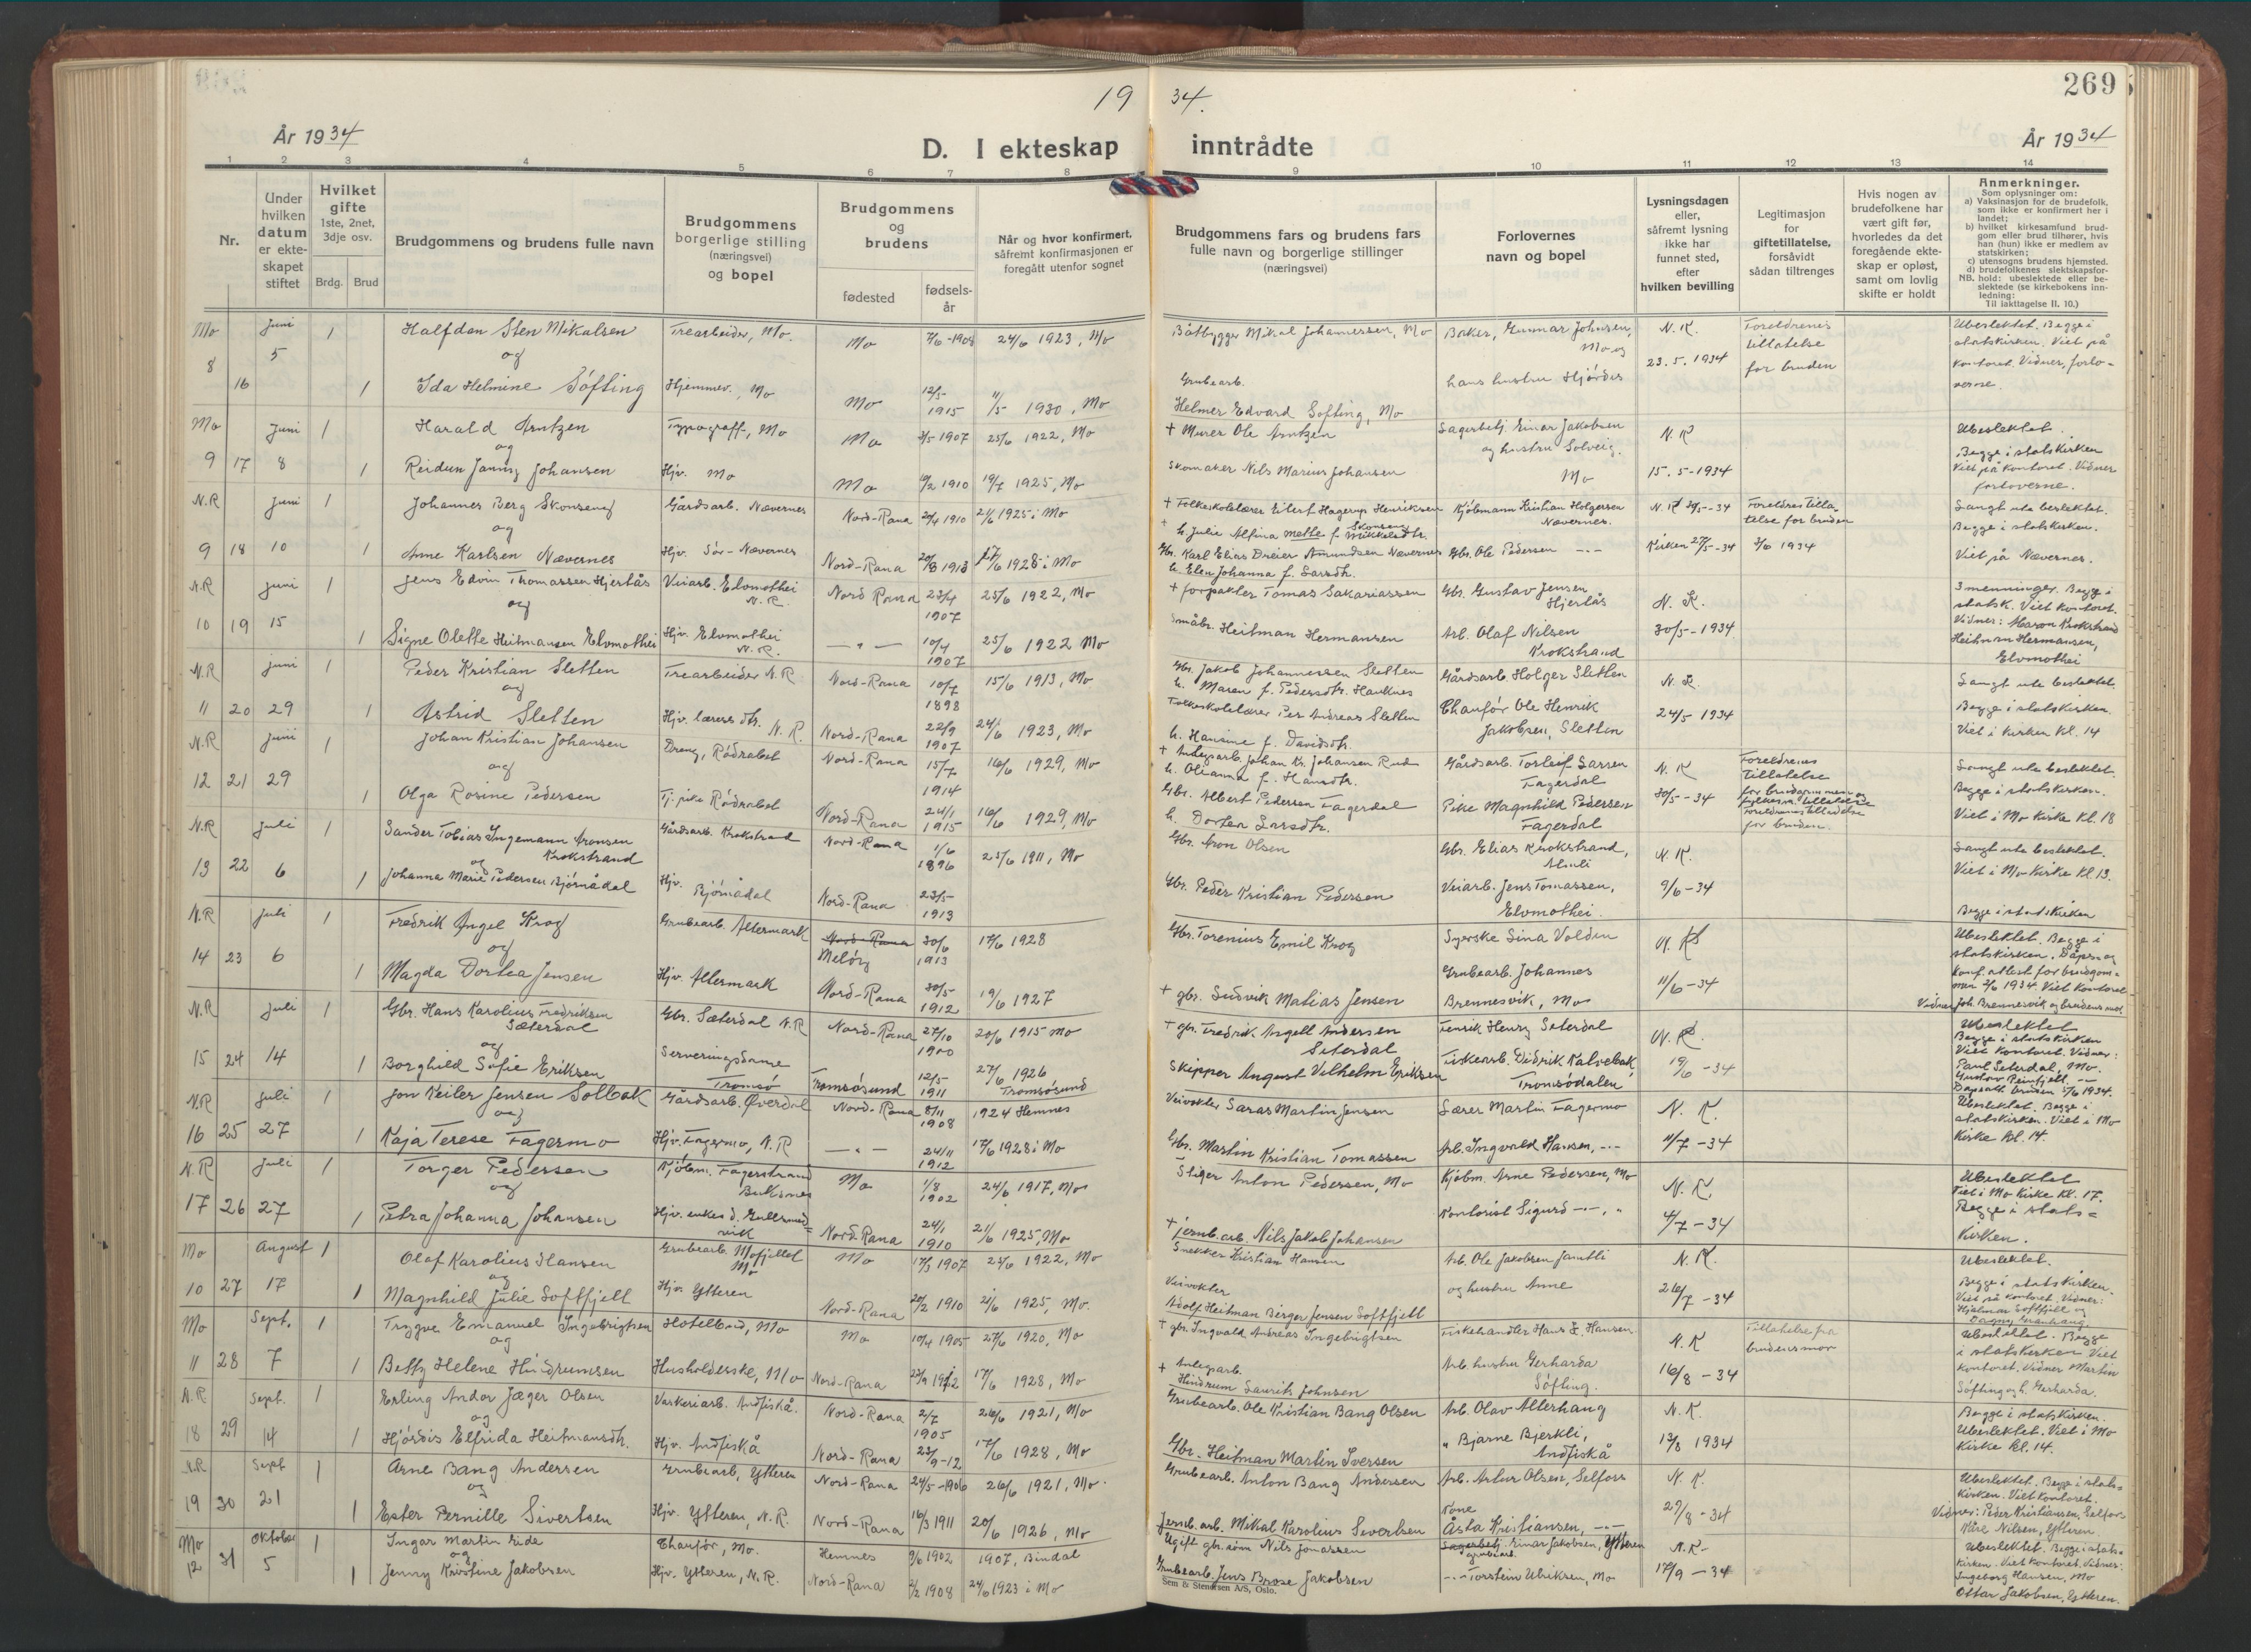 269
19 34.
År 1934
D. I ekteskap inntrådte
År 1934
1 2 3 4 5 6 7 8 9 10 11 12 13 14
Nr.
Under hvilken datum er ekteskapet stiftet
Hvilket gifte
1ste, 2net, 3dje osv.
Brdg. Brud
Brudgommens og brudens fulle navn
Brudgommens borgerlige stilling (næringsvei) og bopel
Brudgommens og brudens
fødested
fødselsår
Når og hvor konfirmert, såfremt konfirmasjonen er foregått utenfor sognet
Brudgommens fars og brudens fars fulle navn og borgerlige stillinger (næringsvei)
Forlovernes navn og bopel
Lysningsdagen eller, såfremt lysning ikke har funnet sted, efter hvilken bevilling
Legitimasjon for giftetillatelse, forsåvidt sådan tiltrenges
Hvis nogen av brudefolkene har vært gift før, hvorledes da det foregående ekteskap er opløst, samt om lovlig skifte er holdt
Anmerkninger.
Som oplysninger om:
a) Vaksinasjon for de brudefolk, som ikke er konfirmert her i landet;
b) hvilket kirkesamfund brudgom eller brud tilhører, hvis han (hun) ikke er medlem av statskirken;
c) utensogns brudens hjemsted.
d) brudefolkenes slektskapsforhold: ubeslektede eller beslektede (se kirkebokens innledning:
NB.
Til iakttagelse II. 10.)
Mo 8 16 Juni 5 1 Halfdan Sten Mikalsen Trearbeider, Mo. Mo 7/6-1908 24/6 1923, Mo Båtbygger Mikal Johannessen, Mo Baker, Gunnar Johnsen, Mo og N.K. 23.5.1934 Foreldrenes tillatelse for bruden Ubeslektet. Begge i statskirken. Viet på kontoret. Vidner, forloverne.
og
1 Ida Helmine Søfting Hjemmev., Mo Mo 12/5 1915 1930, Mo Grubearb. Helmer Edvard Søfting, Mo hans hustru Hjørdis
Mo 9 17 Juni 8 1 Harald Arntzen Typograff, Mo Mo 1907 25/6 1922, Mo + Murer Ole Arntzen Sagarbeidj. Einar Jakobsen og hustru Solveig. Mo N.K 15.5-1934 Ubeslektet. Begge i statskirken Viet på kontoret. Vidner forloverne.
og
1 Reidun Janny Johansen Hjv. Mo Mo 1910 19/7 1925, Mo Skomaker Nils Marius Johansen
N.R 9 18 Juni 10 1 Johannes Berg Skonseng Gårdsarb. Nævernes Nord-Rana 20/4 1910 21/6 1925 i Mo + Folkeskolelærer Eilert Hagerup Henriksen Skonseng Kjøbmann Kristian Holgersen Nævernes. Foreldres tillatelse for bruden 2/6 1934 Langt ute beslektet. Begge i statskirken. Viet på Nævernes.
og
1 Anne Karlsen Nævernes Hjv. Sør-Nævernes Nord-Rana 20/8 1913 17/6 1928 i Mo Gbr. Karl Elias Dreier Amundsen Nævernes h. Elen Johanna f. Larsdtr. Gbr. Ole Pedersen -"- Kirken 27/5-34
N.R 10 19 juni 15 1 Jens Edvin Thomassen Hjertås Veiarb. Elvmothei N.R. Nord Rana 23/4 1907 25/6 1922, Mo + forpakter Tomas Sakariassen Gbr. Gustav Jensen Hjertås N.K. 30/5-1934 3 menninger. Begge i statsk. Viet kontoret. Vidner: Krokstrand Heitman Hermansen, Elvmothei
og
1 Signe Olette Heitmansen Elvmothei Hjv. Elvmothei N.R. -"- 10/4 1907 25/6 1922 Mo Småbr. Heitman Hermansen Arb. Olaf Nilsen Krokstrand
N.R 11 20 juni 29 1 Peder Kristian Sletten Trearbeider N.R Nord-Rana 10/7 1898 15/6 1913, Mo Gbr. Jakob Johannessen Sletten h. Maren f. Pedersdtr. Hauknes Gårdsarb. Holger Sletten N.K. 24/5-1934 Langt ute beslektet. Begge i statskirken. Viet i kirken kl. 14
og
1 Astrid Sletten Hjv. lærers dtr. N.R. Nord-Rana 22/9 1907 24/6 1923, Mo Folkeskolelærer Per Andreas Sletten h. Hansine f. Davidsdtr. Chauffør Ole Henrik Jakobsen, Sletten
N.R 12 21 juni 29 1 Johan Kristian Johansen Dreng, Rødrabet Nord-Rana 15/7 1914 16/6 1929, Mo + Anlegsarb. Johan Kr. Johansen Rud h. Olianna f. Hansdtr. Gårdsarb. Torleif Larsen Fagerdal N.K 30/5-34 Foreldrenes tillatelse for brudgommen og fylkesm. tillatelse Foreldrenes tilladelse for bruden. Langt ute beslektet. Begge i statskirken. Viet i Mo Kirke kl. 18
og
1 Olga Rosine Pedersen Tj.pike Rødrabet Nord-Rana 24/1 1915 16/6 1929, Mo Gbr. Albert Pedersen Fagerdal h. Dortea Larsdtr. Pike Magnhild Pedersen Fagerdal
N.R 13 22 juli 6 1 Sander Tobias Ingemann Aronsen Krokstrand Gårdsarb. Krokstrand Nord-Rana 1/6 1896 25/6 1911, Mo Gbr. Aron Olsen Gbr. Elias Krokstrand, N.K. 9/6-34 Langt ute beslektet. Viet i Mo Kirke kl. 13. Begge i statskirken
og
1 Johanna Marie Pedersen Bjørnådal Hjv. Bjørnådal Nord-Rana 23/5 1913 Gbr. Peder Kristian Pedersen Veiarb. Jens Tomassen, Elvmothei.
N.R 14 23 juli 6 1 Fredrik Angel Krog Grubearb. Altermark Nord-Rana Meløy 30/6 1913 17/6 1928 Gbr. Torenius Emil Krog Syerske Sina Volden N.K 11/6-34 Ubeslektet. Begge i statskirken. Dåps og konf. attest for brudgommen 2/6 1934. Viet Kontoret Vidner Joh. Brennesvik og brudens mor.
og
1 Magda Dortea Jensen Hjv. Altermark Nord-Rana 30/5 1912 19/6 1927 + gbr. Ludvik Matias Jensen Grubearb. Johannes Brennesvik, Mo
N.R 15 24 juli 14 1 Gbr. Hans Karolius Fredriksen Sæterdal Gbr. Sæterdal N.R Nord-Rana 27/10 1900 20/6 1915 Mo + gbr. Fredrik Angell Andersen Seterdal Henrik Henry Seterdal N.K. 19/6-34 Ubeslektet Begge i statskirken Viet kontoret. Vidner: Paul Seterdal, Mo. Gustav Reinfjell. -"- Dåpsatt. bruden 5/6 1934.
og
1 Borghild Sofie Eriksen Serveringsdame Tromsø Tromsøsund 12/5 1911 27/6 1926 Tromsøsund Skipper August Vilhelm Eriksen Fiskearb. Didrik Kalvebak, Tromsødalen
N.R 16 25 juli 27 1 Jon Keiler Jensen Solbak Gårdsarb. Øverdal Nord-Rana 8/11 1908 1924 Hemnes Veivokter Saras Martin Jensen Lærer Martin Fagermo N.K. 11/7-34 Ubeslektet. Begge i statskirken. Viet i Mo Kirke kl. 14.
og
1 Kaja Terese Fagermo Hjv. Fagermo, N.R -"- 24/11 1912 17/6 1928 i Mo Gbr. Martin Kristian Tomassen Arb. Ingvald Hansen, -"-
N.R 17 26 Juli 27 1 Torger Pedersen Kjøbm. Fagerstrand Buksnes Mo 1/8 1902 24/6 1917, Mo Stiger Anton Pedersen, Mo Kjøbm. Arne Pedersen, Mo N.K. 4/7-34 Ubeslektet Viet i Mo Kirke kl. 17. Begge i statskirken.
og
1 Petra Johanna Johansen Hjv. enkes d. Gullsmedvik Nord Rana 24/1 1910 21/6 1925, Mo + jernb.arb. Nils Jakob Johansen Kontorist Sigurd -"-, "
Mo 10 27 August 17 1 Olaf Karolius Hansen Grubearb. Mofjellet Mo Mo 17/3 1907 25/6 1922, Mo Snekker Kristian Hansen Arb. Ole Jakobsen Jamtli N.K. 26/7-34 Ubeslektet. Begge i statskirken. Viet på kontoret. Vidner: Hjalmar Softfjell og Dagny Granhaug.
og
1 Magnhild Julie Softfjell Hjv. Ytteren Nord-Rana 20/2 1910 21/6 1925, Mo. Veivokter Adolf Heitman Birger Jensen Softfjell og hustru Anne
Mo 11 28 Sept. 7 1 Trygve Emanuel Ingebrigtsen Hotelbud, Mo Mo 10/4 1905 27/6 1920, Mo + gbr. Ingvald Andreas Ingebrigtsen Fiskehandler Hans F. Hansen N.K 16/8-34 Tillatelse fra brudens mor Ubeslektet. Begge i statskirken Viet kontoret. Vidner Martin Søfting og h. Gerharda.
og
1 Betty Helene Hindrumsen Husholderske, Mo Nord-Rana 1912 17/6 1928, Mo + Anlegsarb. Hindrum Laurits Johnsen Arb. hustru Gerharda Søfting.
N.R 18 29 Sept. 14 1 Erling Andor Jæger Olsen Vaskeriarb. Andfiskå. Nord-Rana 2/7 1905 26/6 1921, Mo Grubearb. Ole Kristian Bang Olsen Arb. Olav Alterhaug N.K. 13/8 1934 Begge i statskirken. Ubeslektet. Viet i Mo Kirke kl. 14.
og
1 Hjørdis Elfrida Heitmansdtr. Hjv. Andfiskå Nord-Rana 23/9-12 17/6 1928, Mo Gbr. Heitman Martin Iversen " Bjarne Bjerkli, Andfiskå
N.R 19 30 Sept 21 1 Arne Bang Andersen Grubearb, Ytteren Nord-Rana 24/5-1906 26/6 1921, Mo. Grubearb. Anton Bang Andersen Arb. Artur Olsen, Selfors N.K. 27/8-34 Ubeslektet. Begge i statskirken. Viet kontoret. Vidner: Peder Kristiansen, Selfors Kåre Nilsen, Ytteren.
og
1 Ester Pernille Sivertsen Hjv. Ytteren, N.R. Nord-Rana 16/3 1911 20/6 1926, Mo Jernb.arb. Mikal Karolius Sivertsen Kone Åsta Kristiansen, -"-
Mo 12 31 Oktober 5 1 Ingar Martin Eide Chauffør, Mo. Hemnes 9/6 1902 1907, Bindal Ugift gbr.sønn Nils Jonassen Sagarbeidj. grubearb. Einar Jakobsen, Ytteren N.K- 17/9-34 Ubeslektet. Begge i statskirken. Viet kontoret. Vidner: Ingeborg Hansen, Mo Ottar Jakobsen, Ytteren.
og
1 Jenny Kristine Jakobsen Hjv. Ytteren, N.R. Nord-Rana 2/2 1908 24/6 1923 i Mo Grubearb. Jens Brose Jakobsen -"- Torstein Ulriksen, Mo
Sem & Stenersen A/S, Oslo.